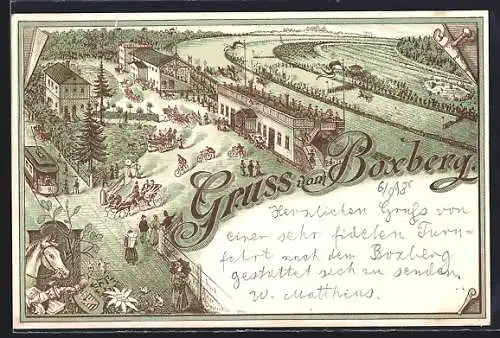 Gruss vom Boxberg.
Herzlichen Gruß von
einer sehr fidelen Turn-
fahrt nach dem Boxberg
gestattet sich zu senden
W. Matthius.